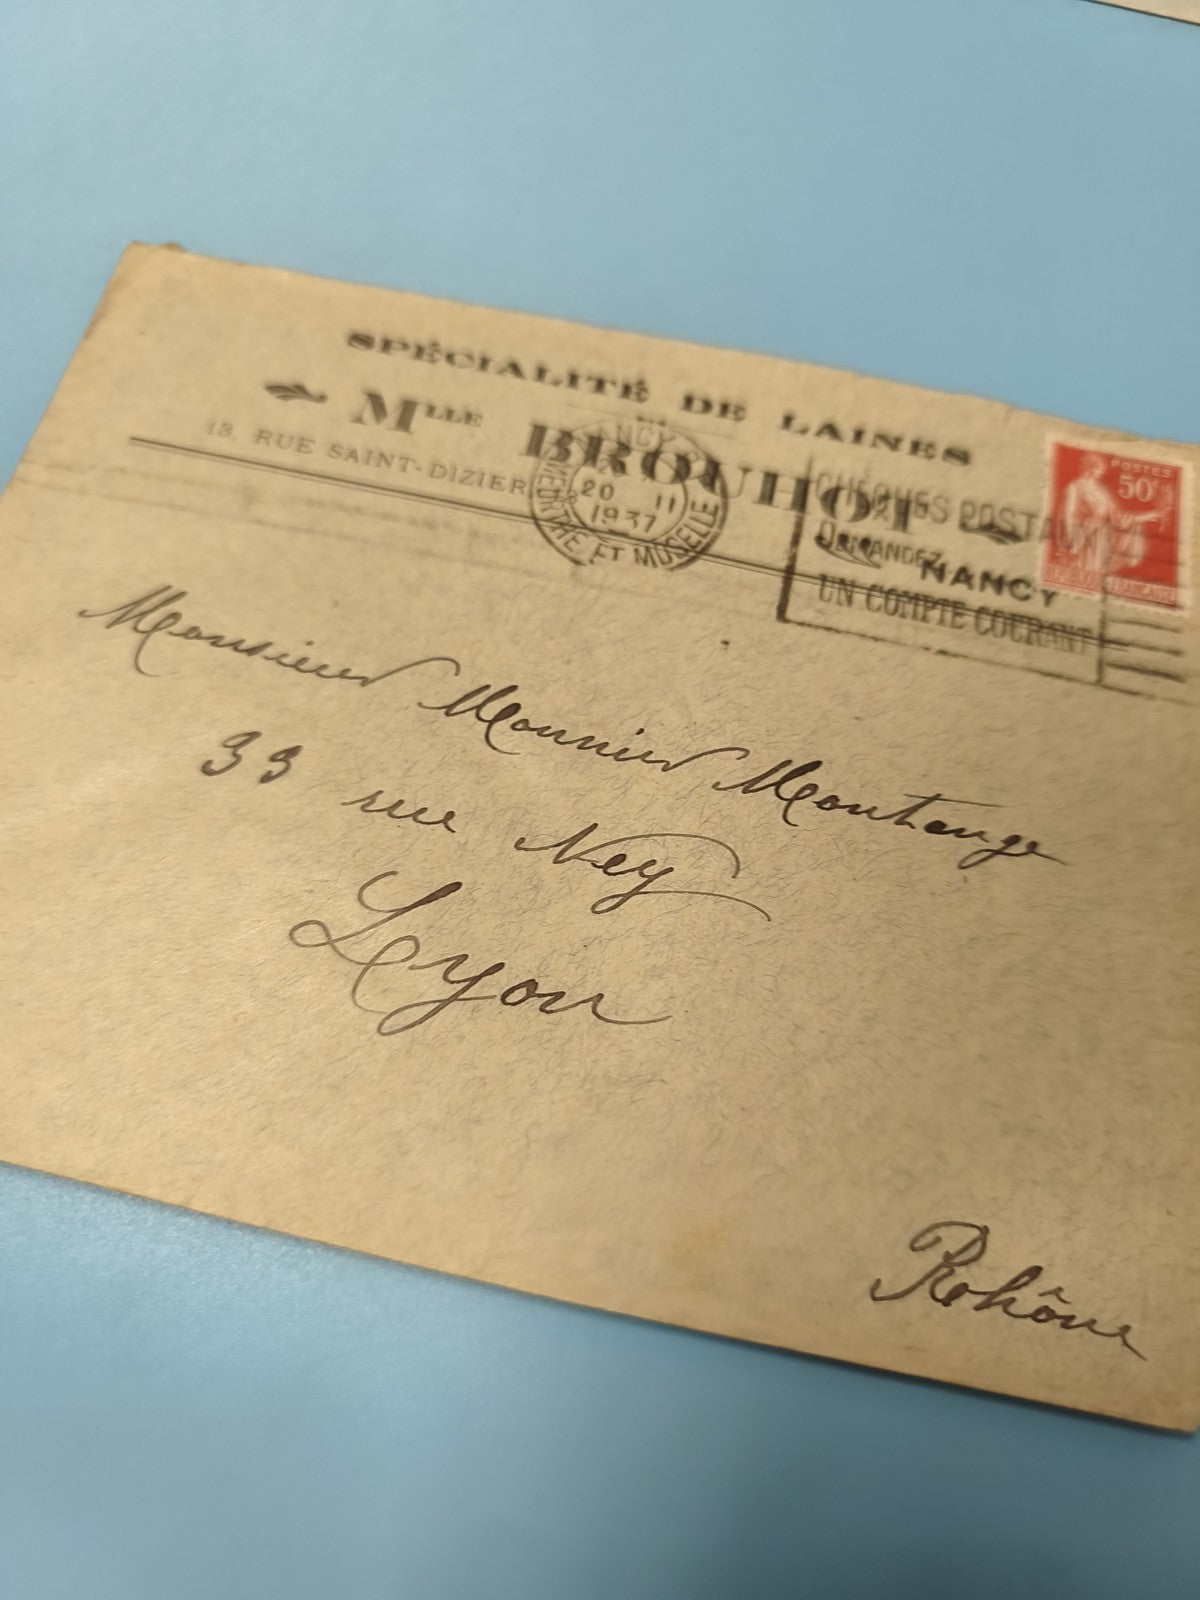 SPÉCIALITÉ DE LAINES
MLLE BROUHOT
13, RUE SAINT-DIZIER
NANCY
NANCY
20 11
1937
MEURTHE ET MOSELLE
CHÈQUES POSTAUX
DEMANDEZ
UN COMPTE COURANT
POSTES
50c
RÉPUBLIQUE FRANÇAISE
Monsieur Monnier Montange
33 rue Ney
Lyon
Rhône